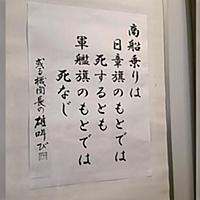 商船乗りは
日章旗のもとでは
死するとも
軍艦旗のもとでは
死なじ
或る機関長の雄叫び